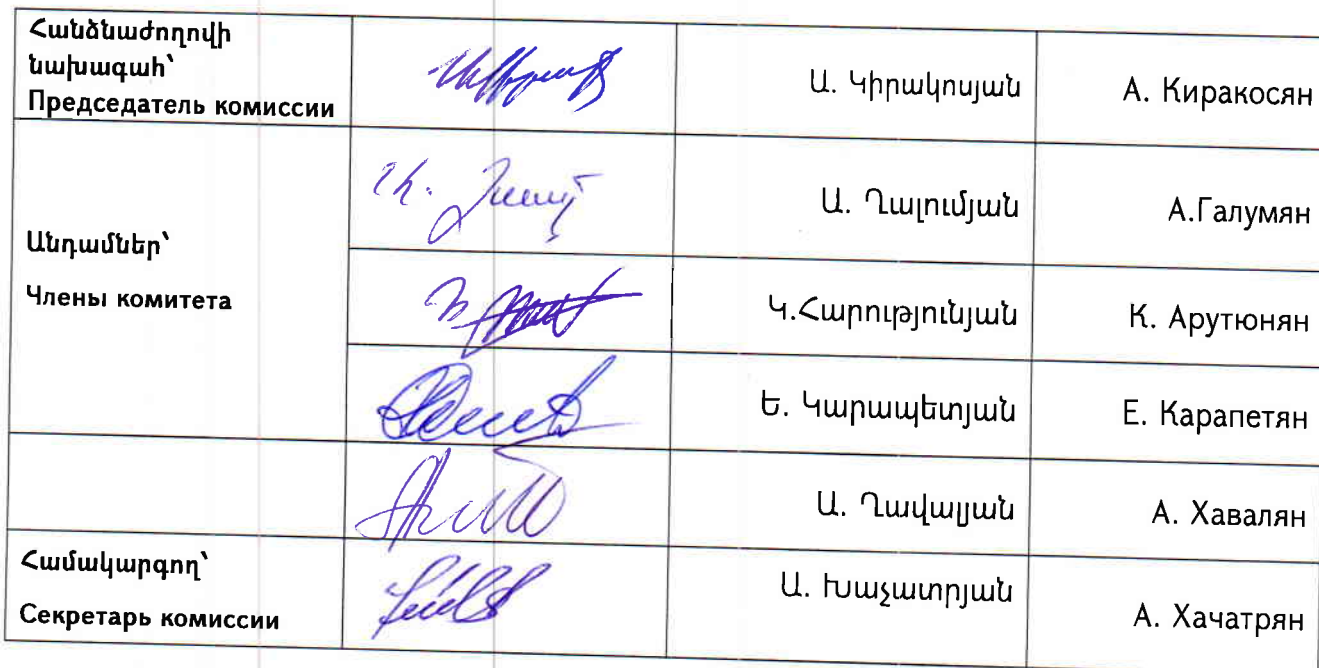 Հանձնաժողովի
նախագահ՝
Председатель комиссии
Ա. Կիրակոսյան
А. Киракосян
Անդամներ՝
Члены комитета
Ա. Ղալումյան
А.Галумян
Կ.Հարությունյան
К. Арутюнян
Ե. Կարապետյան
Е. Карапетян
Ա. Ղավալյան
А. Хавалян
Համակարգող՝
Секретарь комиссии
Ա. Խաչատրյան
А. Хачатрян